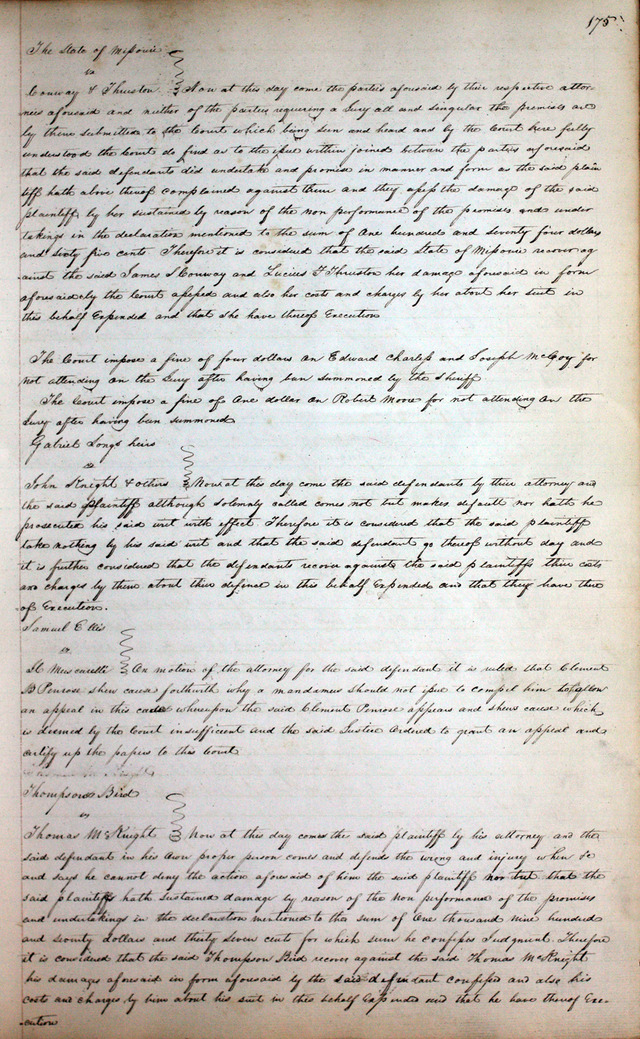 175
The State of Missouri
vs
Conway & Thruston Now at this day come the parties aforesaid by their respective attor-
nies aforesaid and neither of the parties requiring a Jury all and singular the premises are
by them submitted to the Court which being seen and heard and by the Court here fully
understood the Court do find as to the issue within joined between the parties aforesaid
that the said defendants did undertake and promise in manner and form as the said plain
tiff hath above thereof complained against them and they assess the damage of the said
plaintiff by her sustained by reason of the non performance of the promises and under
takings in the declaration mentioned to the sum of One hundred and seventy four dollars
and sixty five cents Therefore it is considered that the said State of Missouri recover ag
ainst the said James S Conway and Lucius F Thruston her damage aforesaid in form
aforesaid by the Court assessed and also her costs and charges by her about her suit in
this behalf Expended and that she have thereof Execution
The Court impose a fine of four dollars on Edward Charless and Joseph McCoy for
not attending on the Jury after having been summoned by the Sheriff
The Court impose a fine of One dollar on Robert Moore for not attending on the
Jury after having been summoned
Gabriel Longs heirs
vs
John Knight & others Now at this day come the said defendants by their attorney and
the said plaintiff although solemnly called comes not but makes default nor hath he
prosecuted his said writ with effect Therefore it is considered that the said plaintiff
take nothing by his said writ and that the said defendant go thereof without day and
it is further considered that the defendants recover against the said plaintiffs their costs
and charges by them about their defence in this behalf Expended and that they have there
of Execution.
Samuel Ellis
vs
On motion of the attorney for the said defendant it is ruled that Clement
B Penrose shew cause forthwith why a mandamus should not issue to compel him to allow
an appeal in this cause whereupon the said Clement Penrose appears and shews cause which
is deemed by the Court insufficient and the said Justice Ordered to grant an appeal and
certify up the papers to this Court
Thompson Bird
vs
Thomas McKnight Now at this day comes the said plaintiff by his attorney and the
said defendant in his own proper person comes and defends the wrong and injury when &c
and says he cannot deny the action aforesaid of him the said plaintiff nor but that the
said plaintiff hath sustained damage by reason of the Non performance of the promises
and undertakings in the declaration mentioned to the sum of One thousand nine hundred
and seventy dollars and thirty seven cents for which sum he confesses Judgment. Therefore
it is considered that the said Thompson Bird recover against the said Thomas McKnight
his damages aforesaid in form aforesaid by the said defendant confessed and also his
costs and charges by him about his suit in this behalf Expended and that he have thereof Exe-
cution